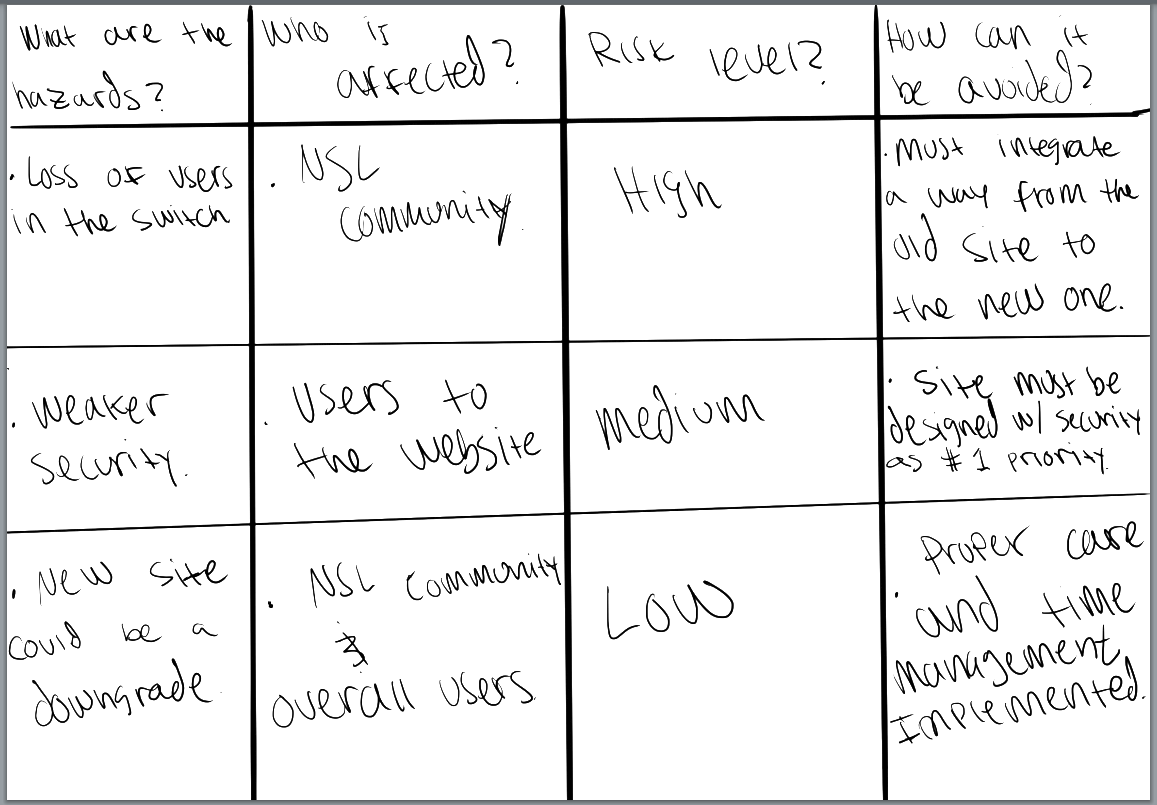 What are the
hazards?
Who is
affected?
Risk level?
How can it
be avoided?
• Loss of users
in the switch
• NSL
community.
High
• Must integrate
a way from the
old site to
the new one.
• Weaker
security.
• Users to
the website
Medium
• Site must be
designed w/ security
as #1 priority.
• New site
could be a
downgrade.
• NSL community
&
overall users.
Low
• Proper care
and time
management
implemented.